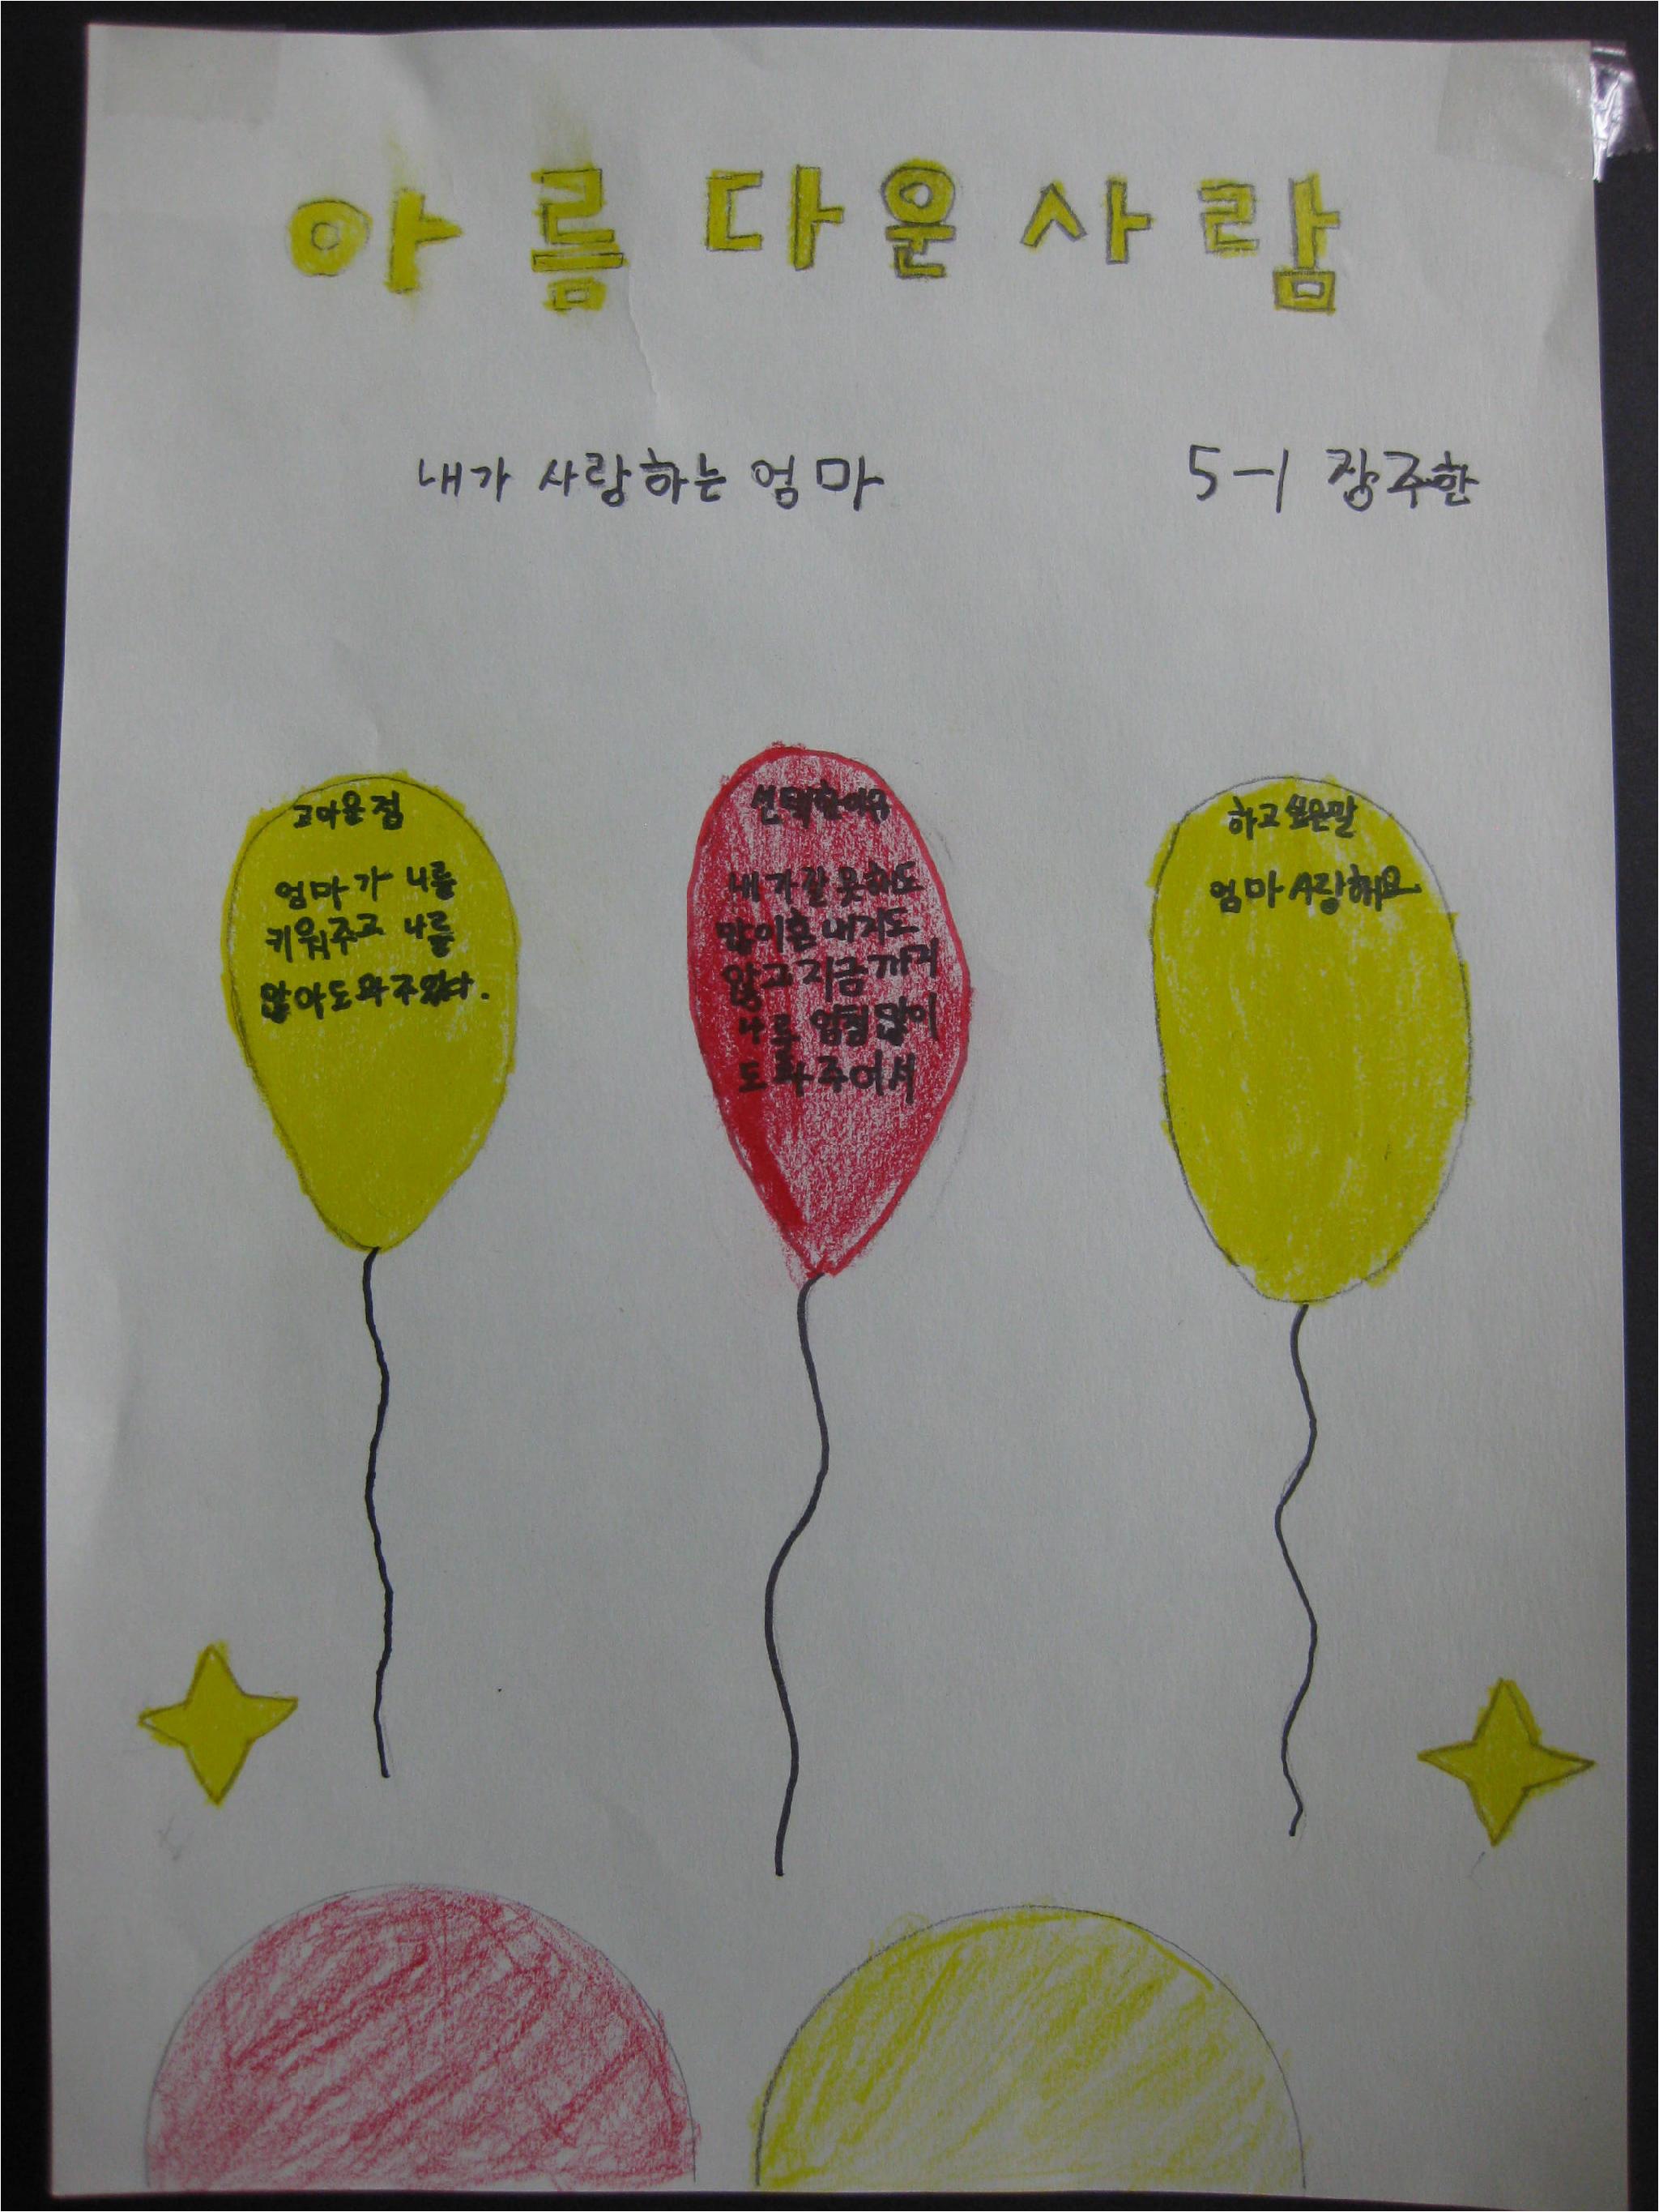 아름다운사람
내가 사랑하는 엄마 5-1 장주한
고마운점
엄마가 나를
키워주고 나를
많이도와주었다.
선택한이유
내가잘못해도
많이혼내지도
않고지금까지
나를 엄청많이
도와주어서
하고싶은말
엄마사랑해요